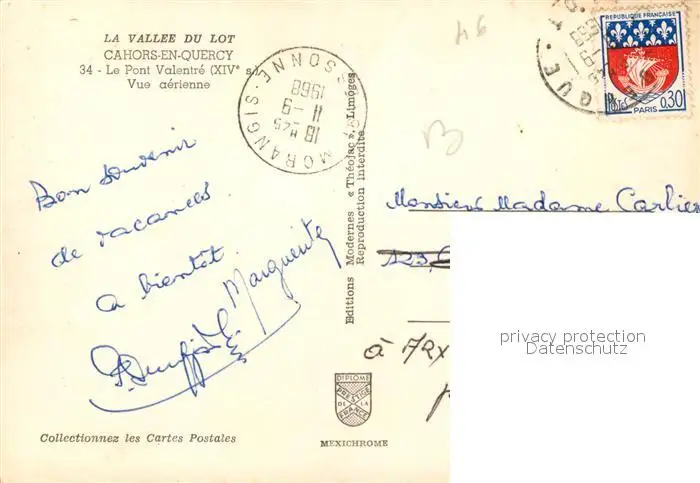 LA VALLEE DU LOT
CAHORS-EN-QUERCY
34 - Le Pont Valentré (XIVe s
Vue aérienne
MORANGIS. S.SONNE
18 H45
11-9
1968
REPUBLIQUE FRANÇAISE
0,30
PARIS
46
B
Bon souvenir
de vacances
a bientôt
Marguerite
Monsieur Madame Carlier
123,
à
Editions Modernes « Théojac », Limoges
Reproduction Interdite
privacy protection
Datenschutz
DIPLOME
PRESTIGE
DE LA
FRANCE
MEXICHROME
Collectionnez les Cartes Postales